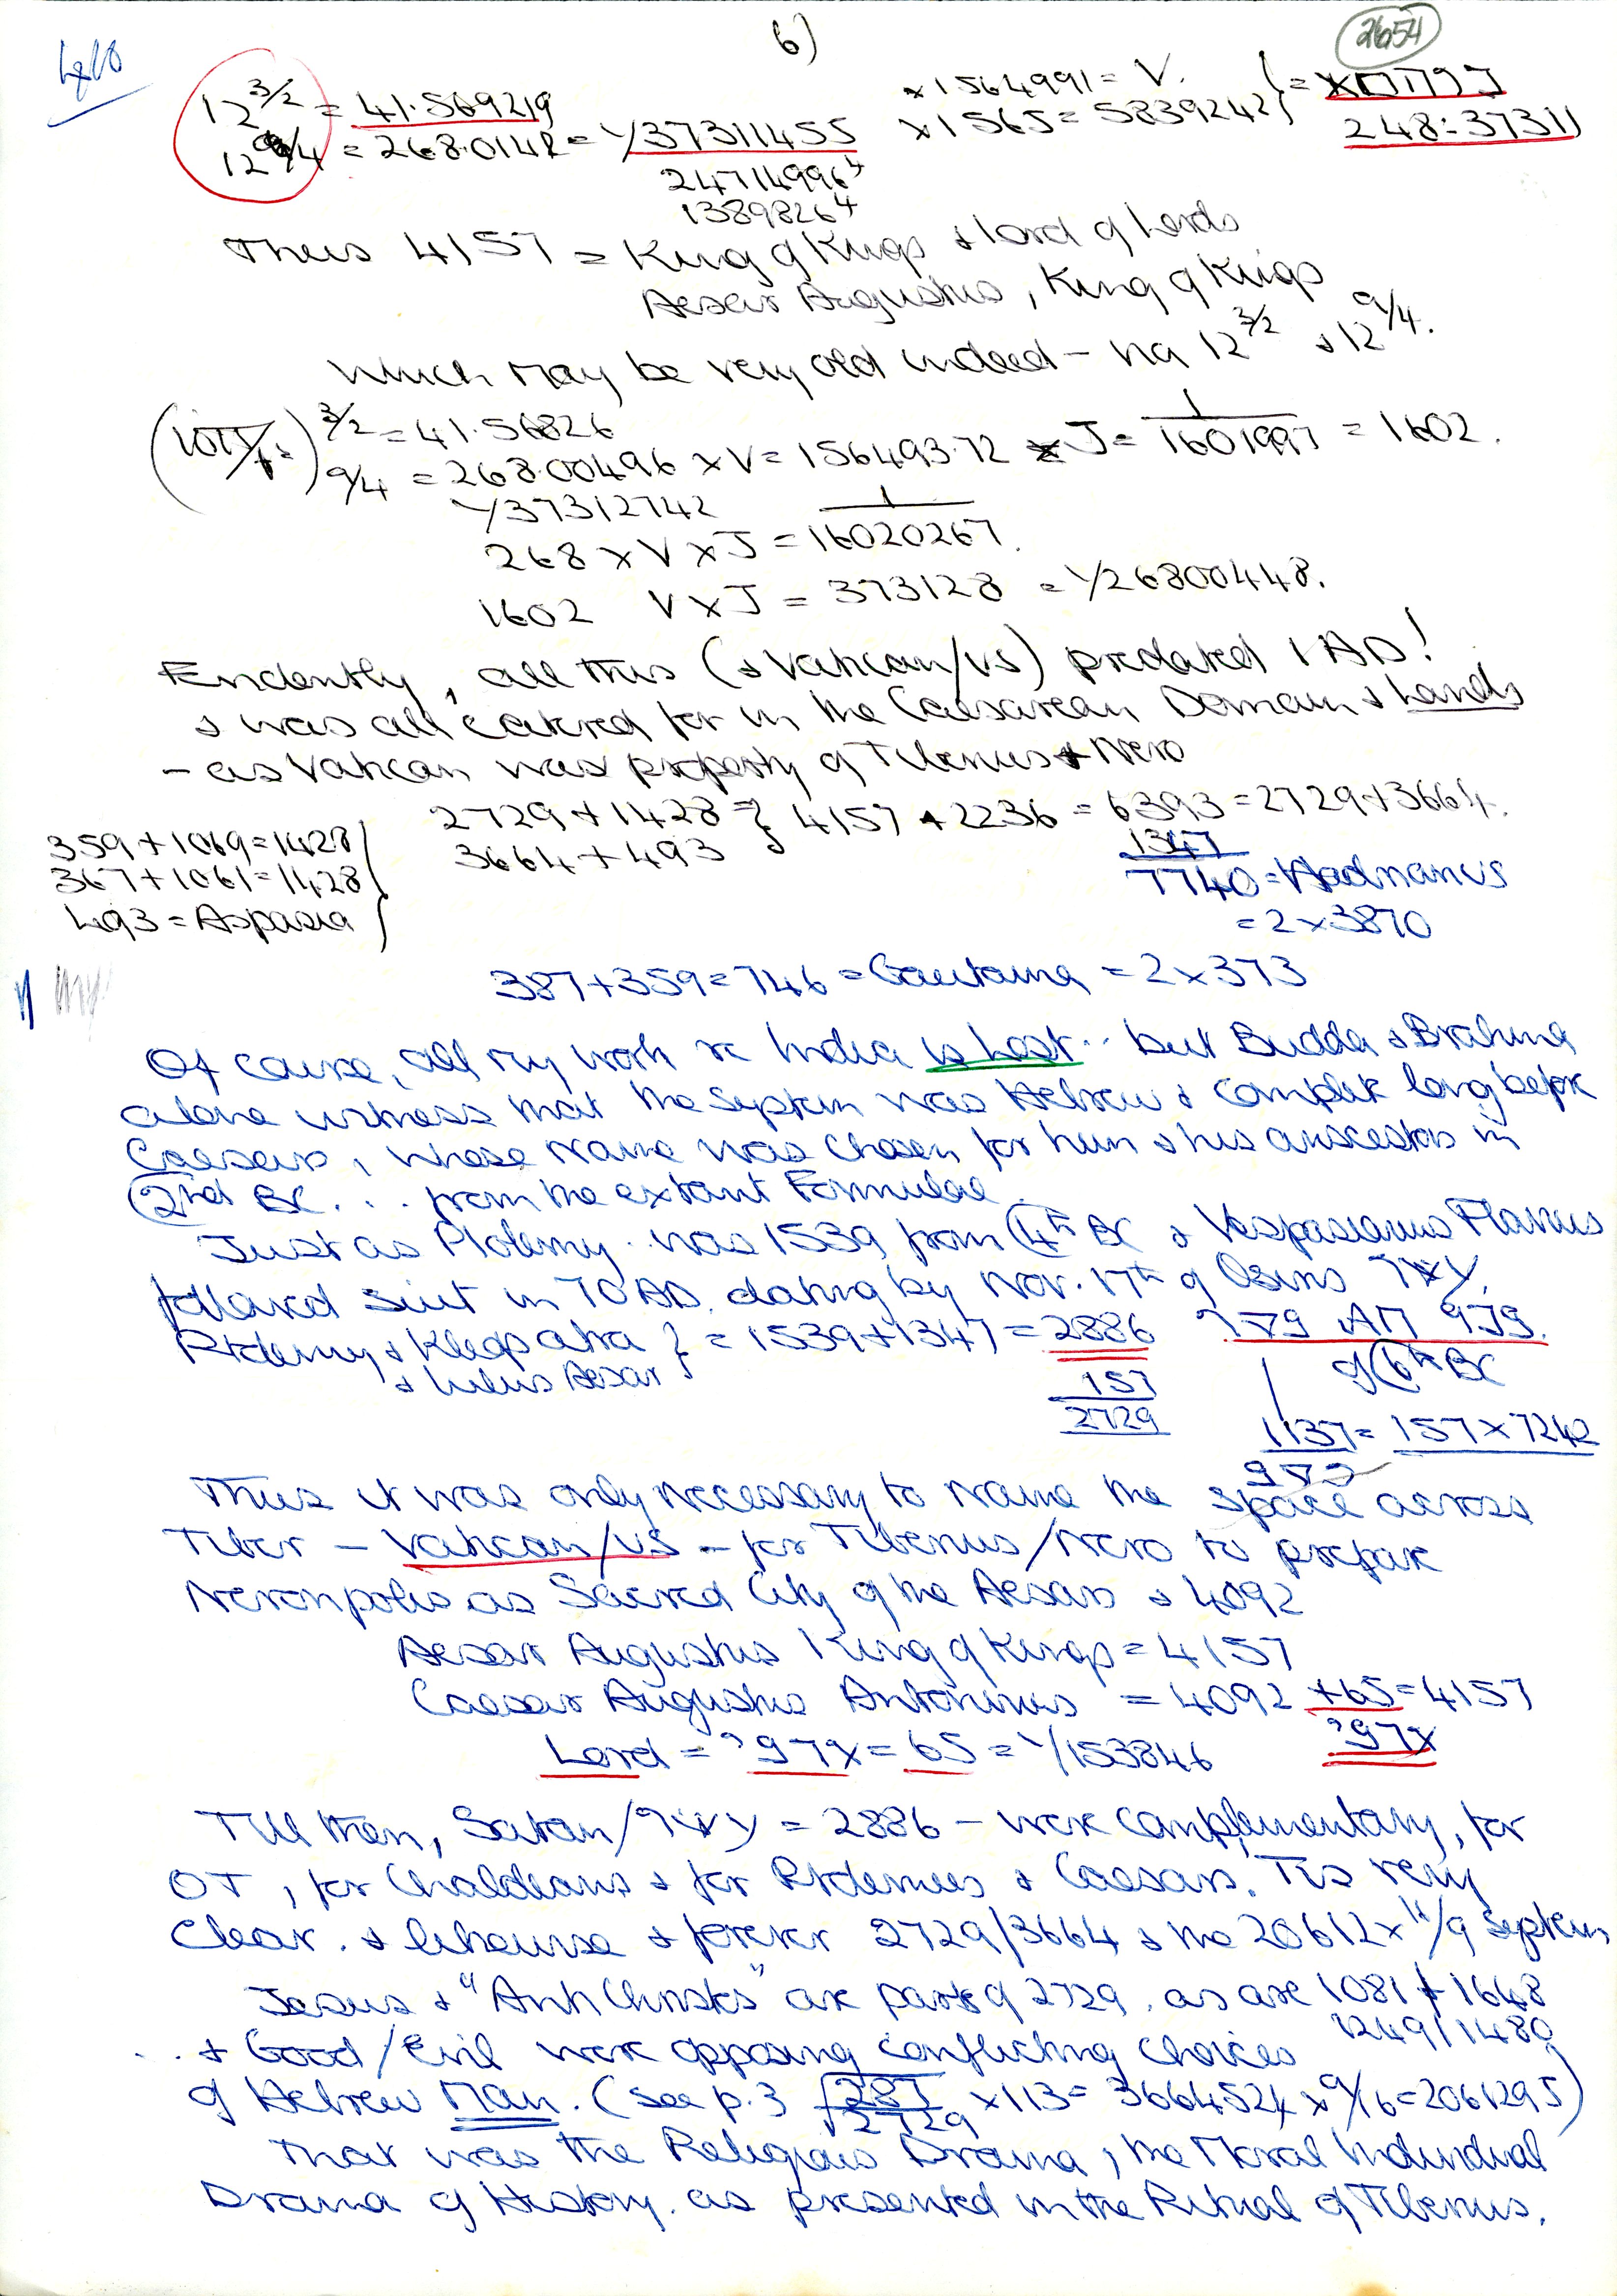 6)
2654
12^3/2 = 41.569219
×1564991 = V.
12^9/4 = 268.0142 = 1/37311455
×1565 = 5839242
248:37311
24714996^4
13898264
Thus 4157 = King of Kings & Lord of Lords
Aesar Augustus, King of Kings
Which may be very old indeed – via 12^3/2 & 12^9/4.
3/2 = 41.56826
9/4 = 268.00496 × V = 156493.72 × J = 1/1601997 = 1602.
1/37312742
268 × V × J = 1/16020267.
1602 V × J = 373128 = 1/26800448.
Evidently, all this (& Vatican/us) predated 1 AD!
& was all catered for in the Caesarean Domain & Lands
– as Vatican was property of Tiberius & Nero
2729 + 1428 = } 4157 + 2236 = 6393 = 2729 + 3664.
3664 + 493
359 + 1069 = 1428
367 + 1061 = 1428
493 = Aspasia
1347
7740 = Hadrianus
= 2 × 3870
387 + 359 = 746 = Gautama = 2 × 373
Of course, all my work re India is Lost.. but Budda & Brahma
alone witness that the System was Hebrew & complete long before
Caesars, whose name was chosen for him & his ancestors in
2nd BC... from the extant Formulae.
Just as Ptolemy was 1539 from 4th BC & Vespasianus Flavius
followed suit in 70 AD. dating by Nov. 17th of Osiris
Ptolemy & Kleopatra } = 1539 + 1347 = 2886
& Julius Aesar
of 6th BC
157
2729
1137 = 157 × 7242
Thus it was only necessary to name the space across
Tiber – Vatican/us – for Tiberius/Nero to prepare
Neronpolis as Sacred City of the Aesars & 4092
Aesar Augustus King of Kings = 4157
Caesar Augustus Antoninus = 4092 + 65 = 4157
Lord = = 65 = 1/153846
Till then, Satan/ = 2886 – were complementary, for
OT, for Chaldeans & for Ptolemies & Caesars. Tis very
Clear. & likewise & forever 2729/3664 & the 20612 × 11/9 System
Jesus & "Anti Christs" are parts of 2729. as are 1081 + 1648
1249/1480
.. & Good/Evil were opposing conflicting choices
of Hebrew Man. (see p.3 √287/√2729 × 113 = 3664524 × 9/16 = 2061295)
That was the Religious Drama, the Moral Individual
Drama of History. as presented in the Ritual of Tiberius.